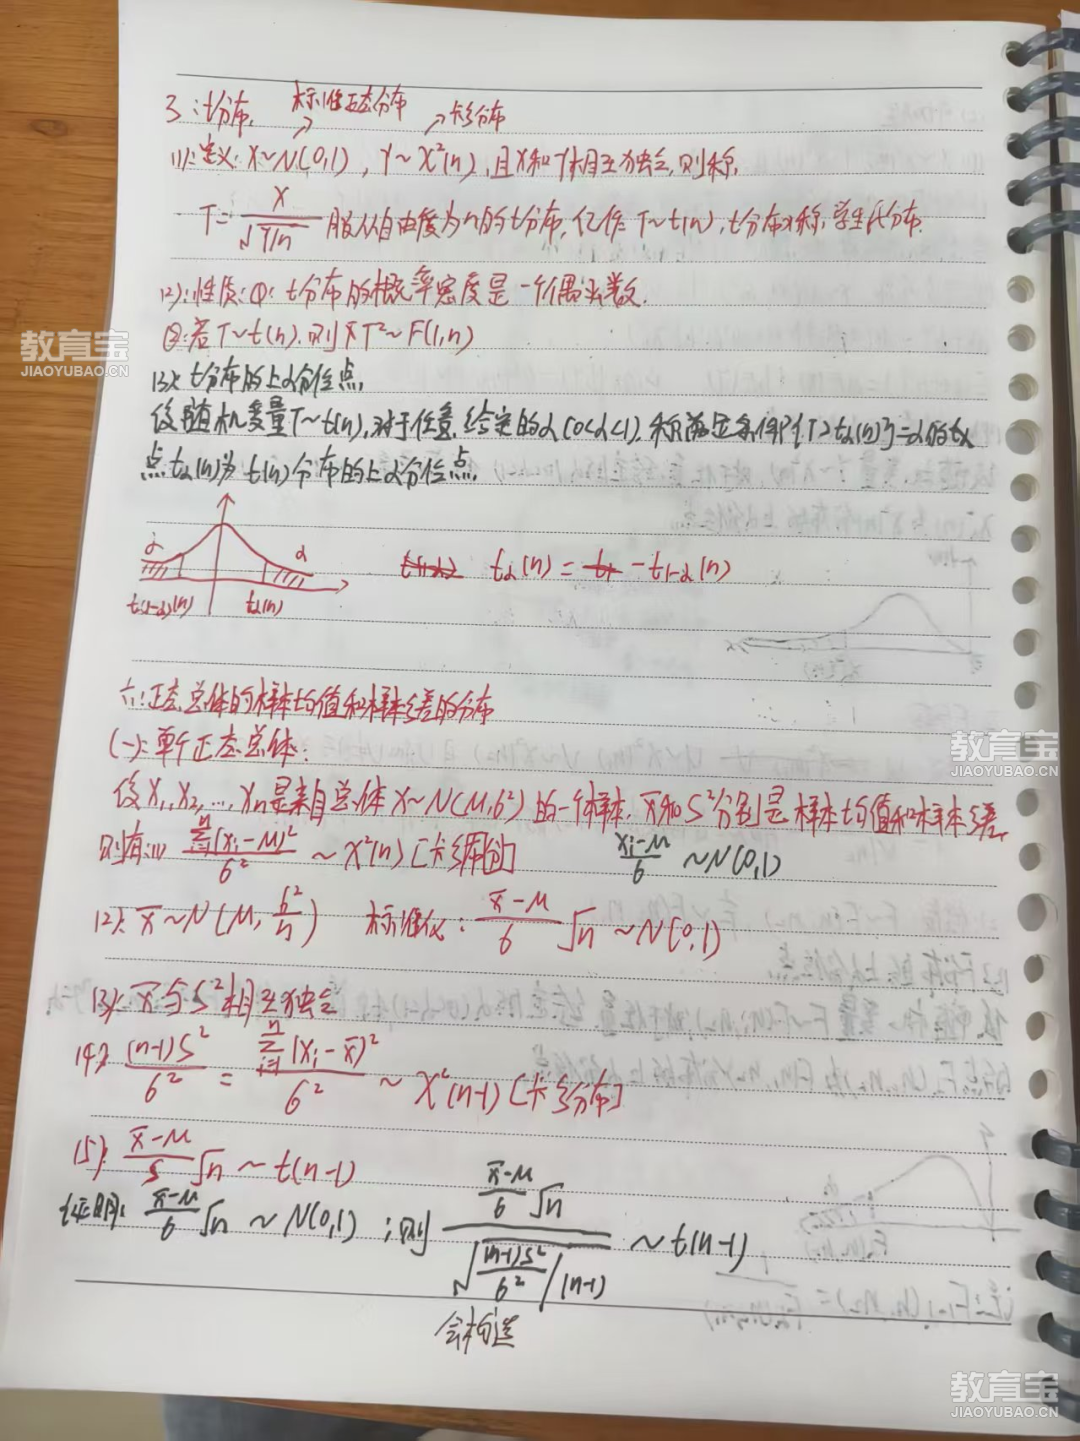 3:t分布, 标准正态分布 卡方分布
(1):定义:X~N(0,1), Y~X²(n),且X和Y相互独立,则称,
T=X/√Y/n 服从自由度为n的t分布,记作 T~t(n),t分布对称,学生氏分布.
(2):性质:①:t分布的概率密度是一个偶函数.
②:若T~t(n).则 T²~F(1,n)
(3):t分布的上α分位点
设随机变量T~t(n),对于任意给定的α(0<α<1).称满足条件P{T>tα(n)}=α的tα
点tα(n)为 t(n)分布的上α分位点
α α
t(1-α)(n) tα(n)
tα(n) = -t1-α(n)
六:正态总体的样本均值和样本方差的分布
(一):单个正态总体:
设X1,X2,…,Xn是来自总体X~N(M,6²)的一个样本.x̄和S²分别是样本均值和样本方差,
则有:(1) Σ(i=1→n)(Xi-M)²/6² ~X²(n) [卡方分布] Xi-M/6 ~N(0,1)
(2): x̄~N(M, 6²/n) 标准化: x̄-M/6 √n ~N(0,1)
(3): x̄与S²相互独立
(4): (n-1)S²/6² = Σ(i=1→n)(Xi-x̄)²/6² ~X²(n-1) [卡方分布]
(5): x̄-M/S √n ~t(n-1)
证明: x̄-M/6 √n ~N(0,1) ;则 x̄-M/6 √n / √((n-1)S²/6² /(n-1)) ~t(n-1)
会构造
教育宝
JIAOYUBAO.CN
教育宝
JIAOYUBAO.CN
教育宝
JIAOYUBAO.CN